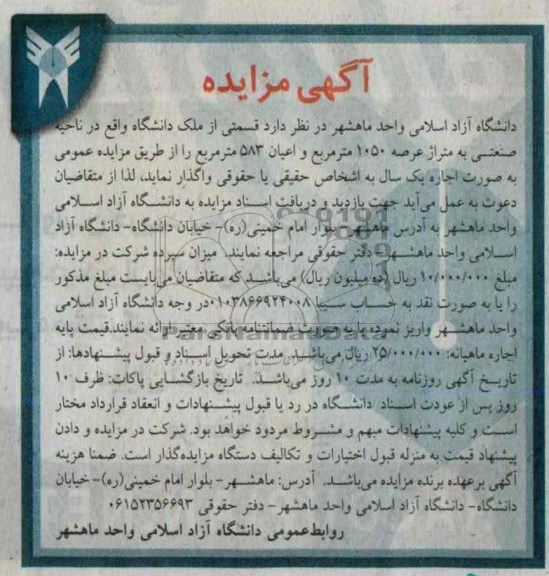 آگهی مزایده
دانشگاه آزاد اسلامی واحد ماهشهر در نظر دارد قسمتی از ملک دانشگاه واقع در ناحیه
صنعتی به متراژ عرصه ۱۰۵۰ مترمربع و اعیان ۵۸۳ مترمربع را از طریق مزایده عمومی
به صورت اجاره یک سال به اشخاص حقیقی یا حقوقی واگذار نماید، لذا از متقاضیان
دعوت به عمل می‌آید جهت بازدید و دریافت اسناد مزایده به دانشگاه آزاد اسلامی
واحد ماهشهر به آدرس ماهشهر- بلوار امام خمینی (ره)- خیابان دانشگاه- دانشگاه آزاد
اسلامی واحد ماهشهر- دفتر حقوقی مراجعه نمایند. میزان سپرده شرکت در مزایده:
مبلغ ۱۰/۰۰۰/۰۰۰ ریال (ده میلیون ریال) می‌باشد که متقاضیان می‌بایست مبلغ مذکور
را یا به صورت نقد به حساب سیبا ۰۱۰۳۸۶۶۹۲۴۰۰۸ در وجه دانشگاه آزاد اسلامی
واحد ماهشهر واریز نموده یا به صورت ضمانتنامه بانکی معتبر ارائه نمایند.قیمت پایه
اجاره ماهیانه: ۲۵/۰۰۰/۰۰۰ ریال می‌باشد. مدت تحویل اسناد و قبول پیشنهادها: از
تاریخ آگهی روزنامه به مدت ۱۰ روز می‌باشد. تاریخ بازگشایی پاکات: ظرف ۱۰
روز پس از عودت اسناد دانشگاه در رد یا قبول پیشنهادات و انعقاد قرارداد مختار
است و کلیه پیشنهادات مبهم و مشروط مردود خواهد بود. شرکت در مزایده و دادن
پیشنهاد قیمت به منزله قبول اختیارات و تکالیف دستگاه مزایده گذار است. ضمنا هزینه
آگهی برعهده برنده مزایده می‌باشد. آدرس: ماهشهر- بلوار امام خمینی(ره)- خیابان
دانشگاه- دانشگاه آزاد اسلامی واحد ماهشهر- دفتر حقوقی ۰۶۱۵۲۳۵۶۶۹۳
روابط‌عمومی دانشگاه آزاد اسلامی واحد ماهشهر
ParsNamadData